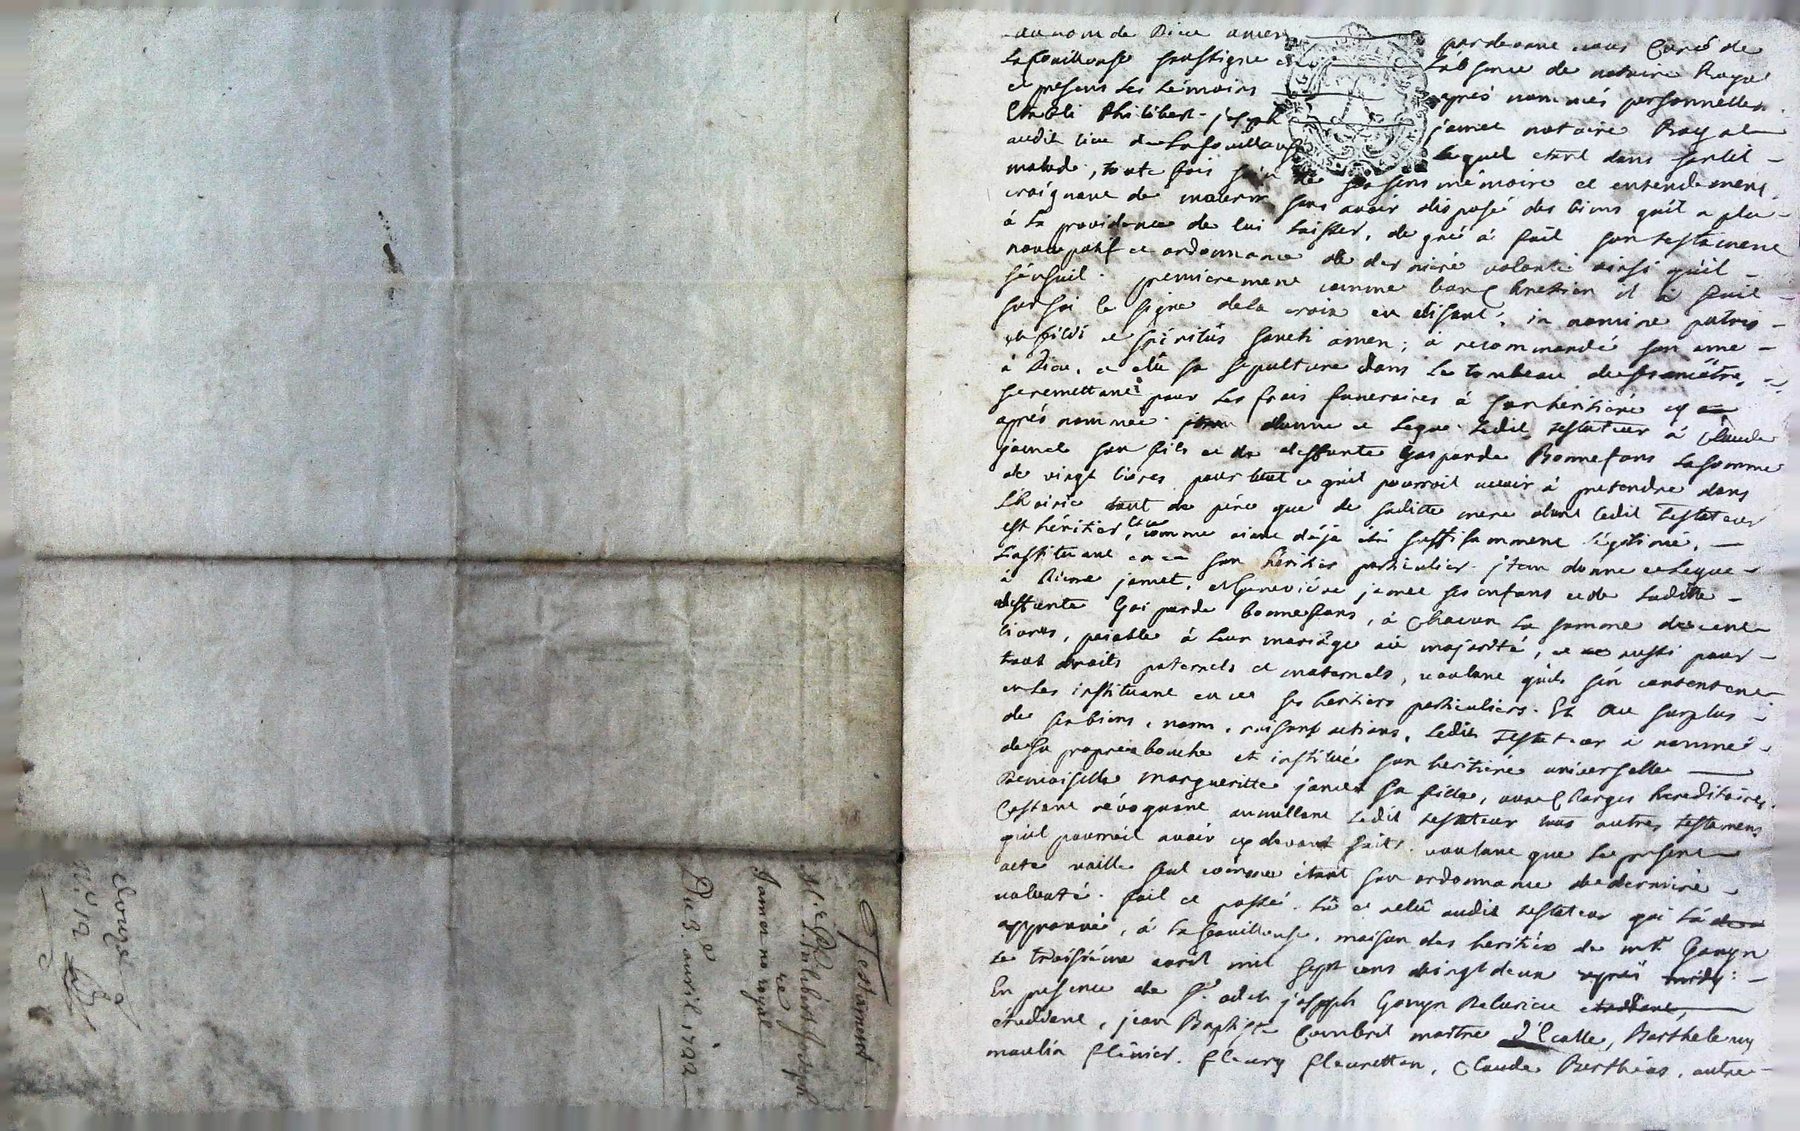 au nom de Dieu amen pardevant nous Curé de
Lafouillouse soussigné en L'absence de notaire Royal
et présens Les temoins après nommés personnellem.
Etabli Philibert-joseph jamet notaire Royal
audit lieu de Lafouillouse Lequel étant dans son lit
malade, toute fois sain de ses sens mémoire et entendement,
craignant de mourir sans avoir disposé des biens qu'il a plu
à La providence de lui Laisser, de gré à fait son testament
noncupatif et ordonnance de derniere volonté ainsi qu'il
s'ensuit. premierement comme bon Chretien il à fait
sur soi le signe de la croix en disant, in nomine patris
et filii et spiritûs sancti amen; à recommandé son ame
à Dieu, et élû sa sepulture dans Le tombeau de ses ancêtres,
se remettant pour Les frais funeraires à son heritiere cy
après nommée. donne et Legue Ledit testateur à Claude
jamet son fils et de deffunte Gasparde Bonnefons La somme
de vingt livres pour tout ce qu'il pourroit avoir à pretendre dans
L'hoirie tout de père que de sadite mere dont Ledit Testateur
est héritier, comme aiant déja été suffisamment légitimé,
L'instituant en ce son héritier particulier. jtem donne et Legue
à jamet, et Genevieve jamet ses enfans et de Ladite
deffunte Gasparde bonnefons, à Chacun La somme de cent
livres, paiable à Leur mariage où majorité, et ce aussi pour
tout droits paternels et maternels, voulant qu'ils s'en contentent
en Les instituant en ce ses heritiers particuliers. Et Au surplus
de ses biens, noms, raisons actions, Ledit Testateur à nommé
de sa propre bouche et institué son heritiere universelle
Demoiselle Margueritte jamet sa fille, aux Charges héreditaires.
Cassant révoquant annullant Ledit testateur tous autres testamens
qu'il pourroit avoir cy devant faits. voulant que Le présent
acte vaille seul comme étant son ordonnance de derniere
volonté. fait et passé. Lû et relû audit testateur qui L'a
approuvé, à Lafouillouse, maison des heritiers de mr. Gonyn
Le troisième avril mil sept cens vingt deux après midy.
En presence de Sr. joseph Gonyn
étudiant, jean Baptiste Combril maitre D'Ecolle, Barthelemy
moulin. fleury fleuretton, Claude Berthéas, autre
Testament
Sr. Philibert joseph
Jamet no. royal
Du 3e. avril 1722
Douze
N.º 12